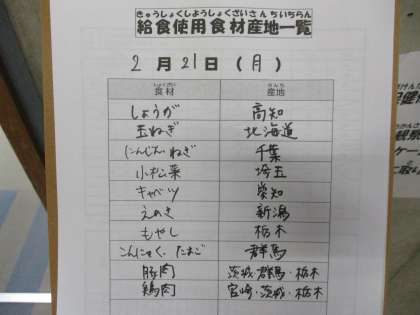 きゅうしょくしようしょくざいさんちいちらん
給食使用食材産地一覧
2月21日(月)
しょくざい さんち
食材 産地
しょうが 高知
玉ねぎ 北海道
にんじん ねぎ 千葉
小松菜 埼玉
キャベツ 愛知
えのき 新潟
もやし 栃木
こんにゃく、たまご 群馬
豚肉 茨城・群馬・栃木
鶏肉 宮崎・茨城・栃木